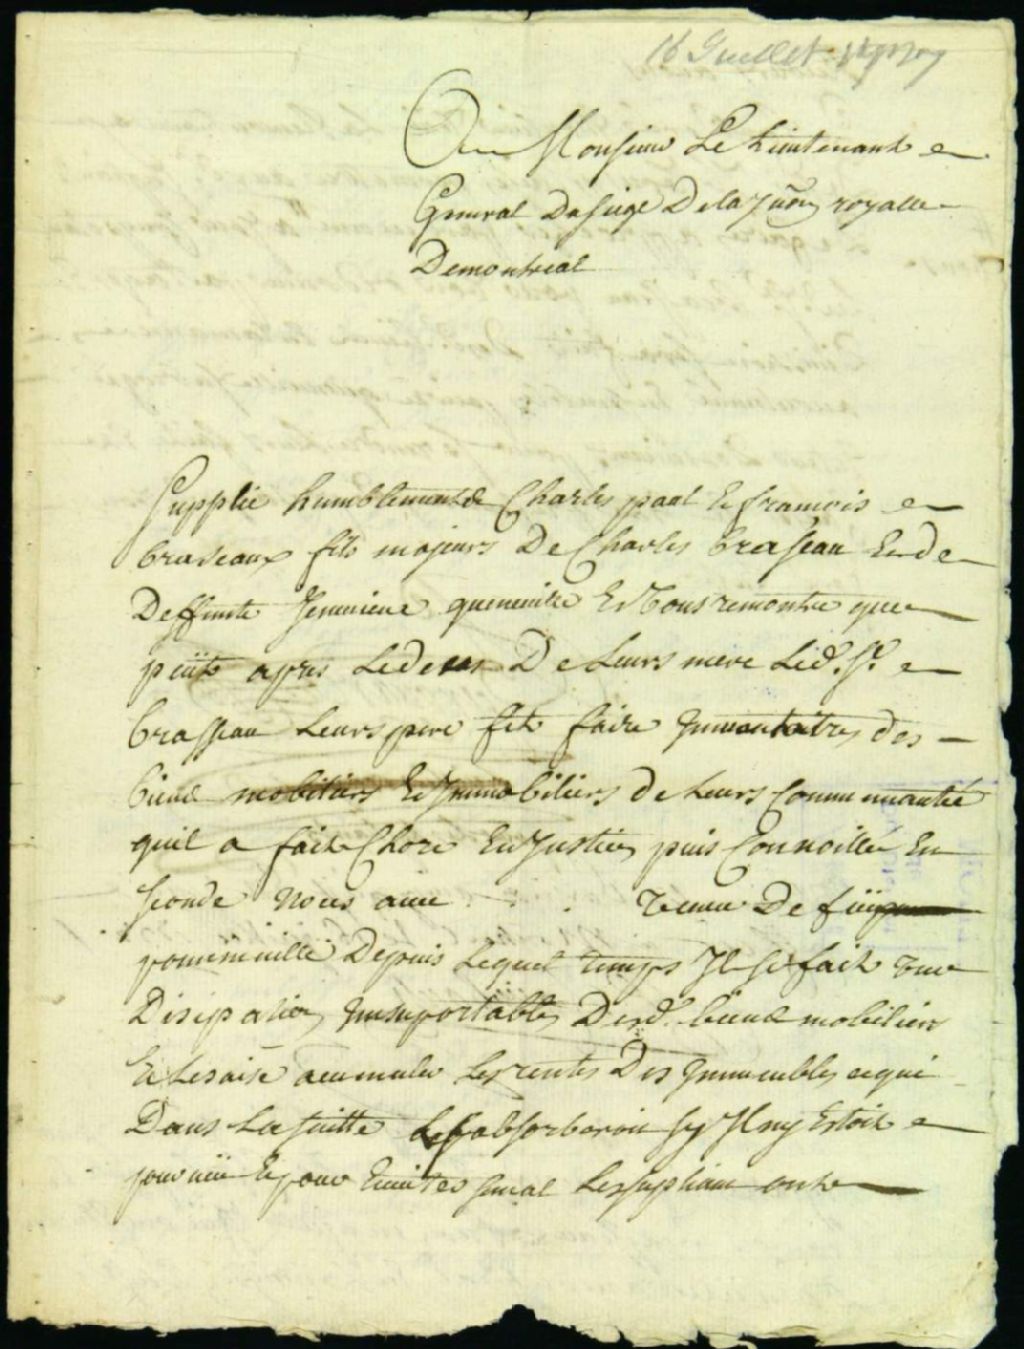 16 Juillet
A Monsieur Le Lieutenant
General Du siege De la Juōn royalle
De montreal
Supplie humblement Charles paul Et francois
braseaux fils majeurs De Charles braseau Et de
Deffunte Jenevieve quenneville Et Vous remontre que
peüte apres Le deces De Leurs mere Led. Sr.
brasseau Leurs pere fit faire Jnventaire des
biens mobiliers Et Jmmobiliers de Leurs Communautée
quil a fait Chore En Justice, puis Convollée En
seconde Noces avec veuve De füe
pominville Depuis Lequel temps Jl se fait vne
Disipation Jnsuportable Desd. biens mobiliers
Et Lesaise acumuler Les rentes Des Jmmeubles ce qui
Dans La suitte Les absorberoit sy Jl ny Estoit
pourvüe Et pour Eviter ce mal Les supliant ont